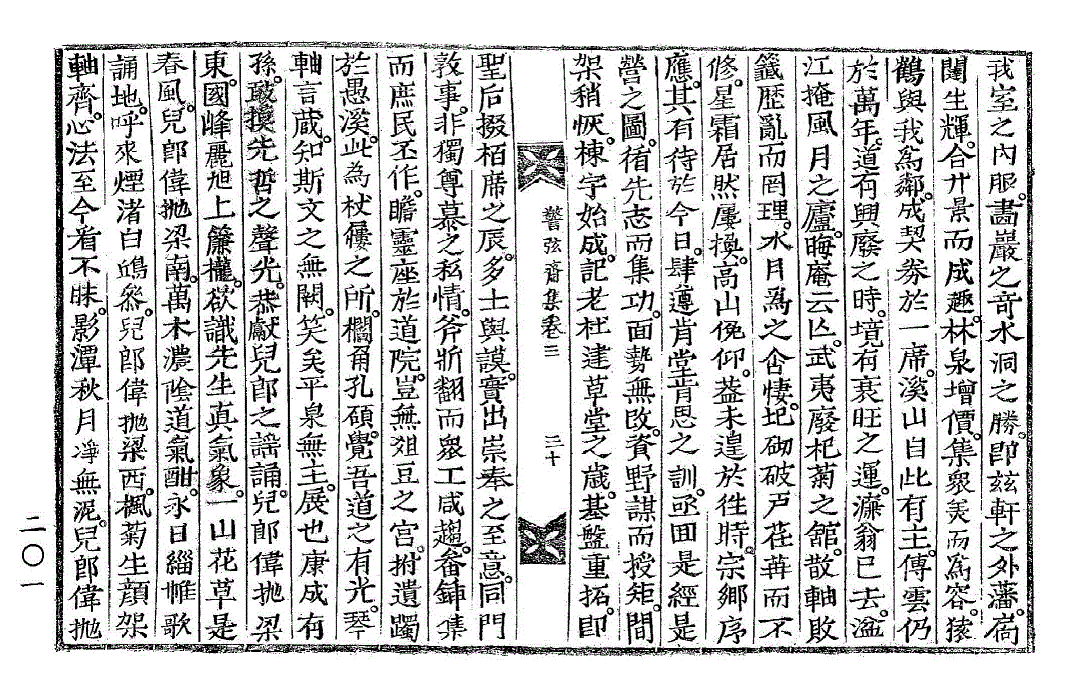 我室之內服。畵巖之奇水洞之勝。卽玆軒之外藩。崗
闥生輝。合廿景而成趣。林泉增價。集衆美而爲容。猿
鶴與我爲鄰。成契券於一席。溪山自此有主。傳雲仍
於萬年。道有興廢之時。境有衰旺之運。濂翁已去。湓
江掩風月之廬。晦庵云亡。武夷廢杞菊之舘。散軸敗
籤歷亂而罔理。水月爲之含悽。圮砌破戶荏苒而不
修。星霜居然屢換。高山俛仰。盖未遑於徃時。宗鄕序
應。其有待於今日。肆遵肯堂肯思之訓。亟回是經是
營之圖。循先志而集功。面勢無改。資野謀而授矩。間
架稍恢。棟宇始成。記老杜建草堂之歲。基盤重拓。卽
警弦齋集卷三 三十
聖后掇栢席之辰。多士與謨。實出崇奉之至意。同門
敦事。非獨尊慕之私情。斧斨翻而衆工咸趨。畚鍤集
而庶民丕作。瞻靈座於道院。豈無俎豆之宮。拊遺躅
於愚溪。此為杖屨之所。欄角孔碩。覺吾道之有光。琴
軸言蔵。知斯文之無闕。笑矣平泉無主。展也康成有
孫。敢揆先哲之聲光。恭獻兒郞之謠誦。兒郞偉拋梁
東。國峰麗旭上簾櫳。欲識先生真氣象。一山花草是
春風。兒郞偉拋梁南。萬木濃陰道氣酣。永日緇帷歌
誦地。呼來煙渚白鷗叅。兒郞偉拋梁西。楓菊生顔架
軸齊。心法至今看不昧。影潭秋月淨無泥。兒郞偉拋
二〇一